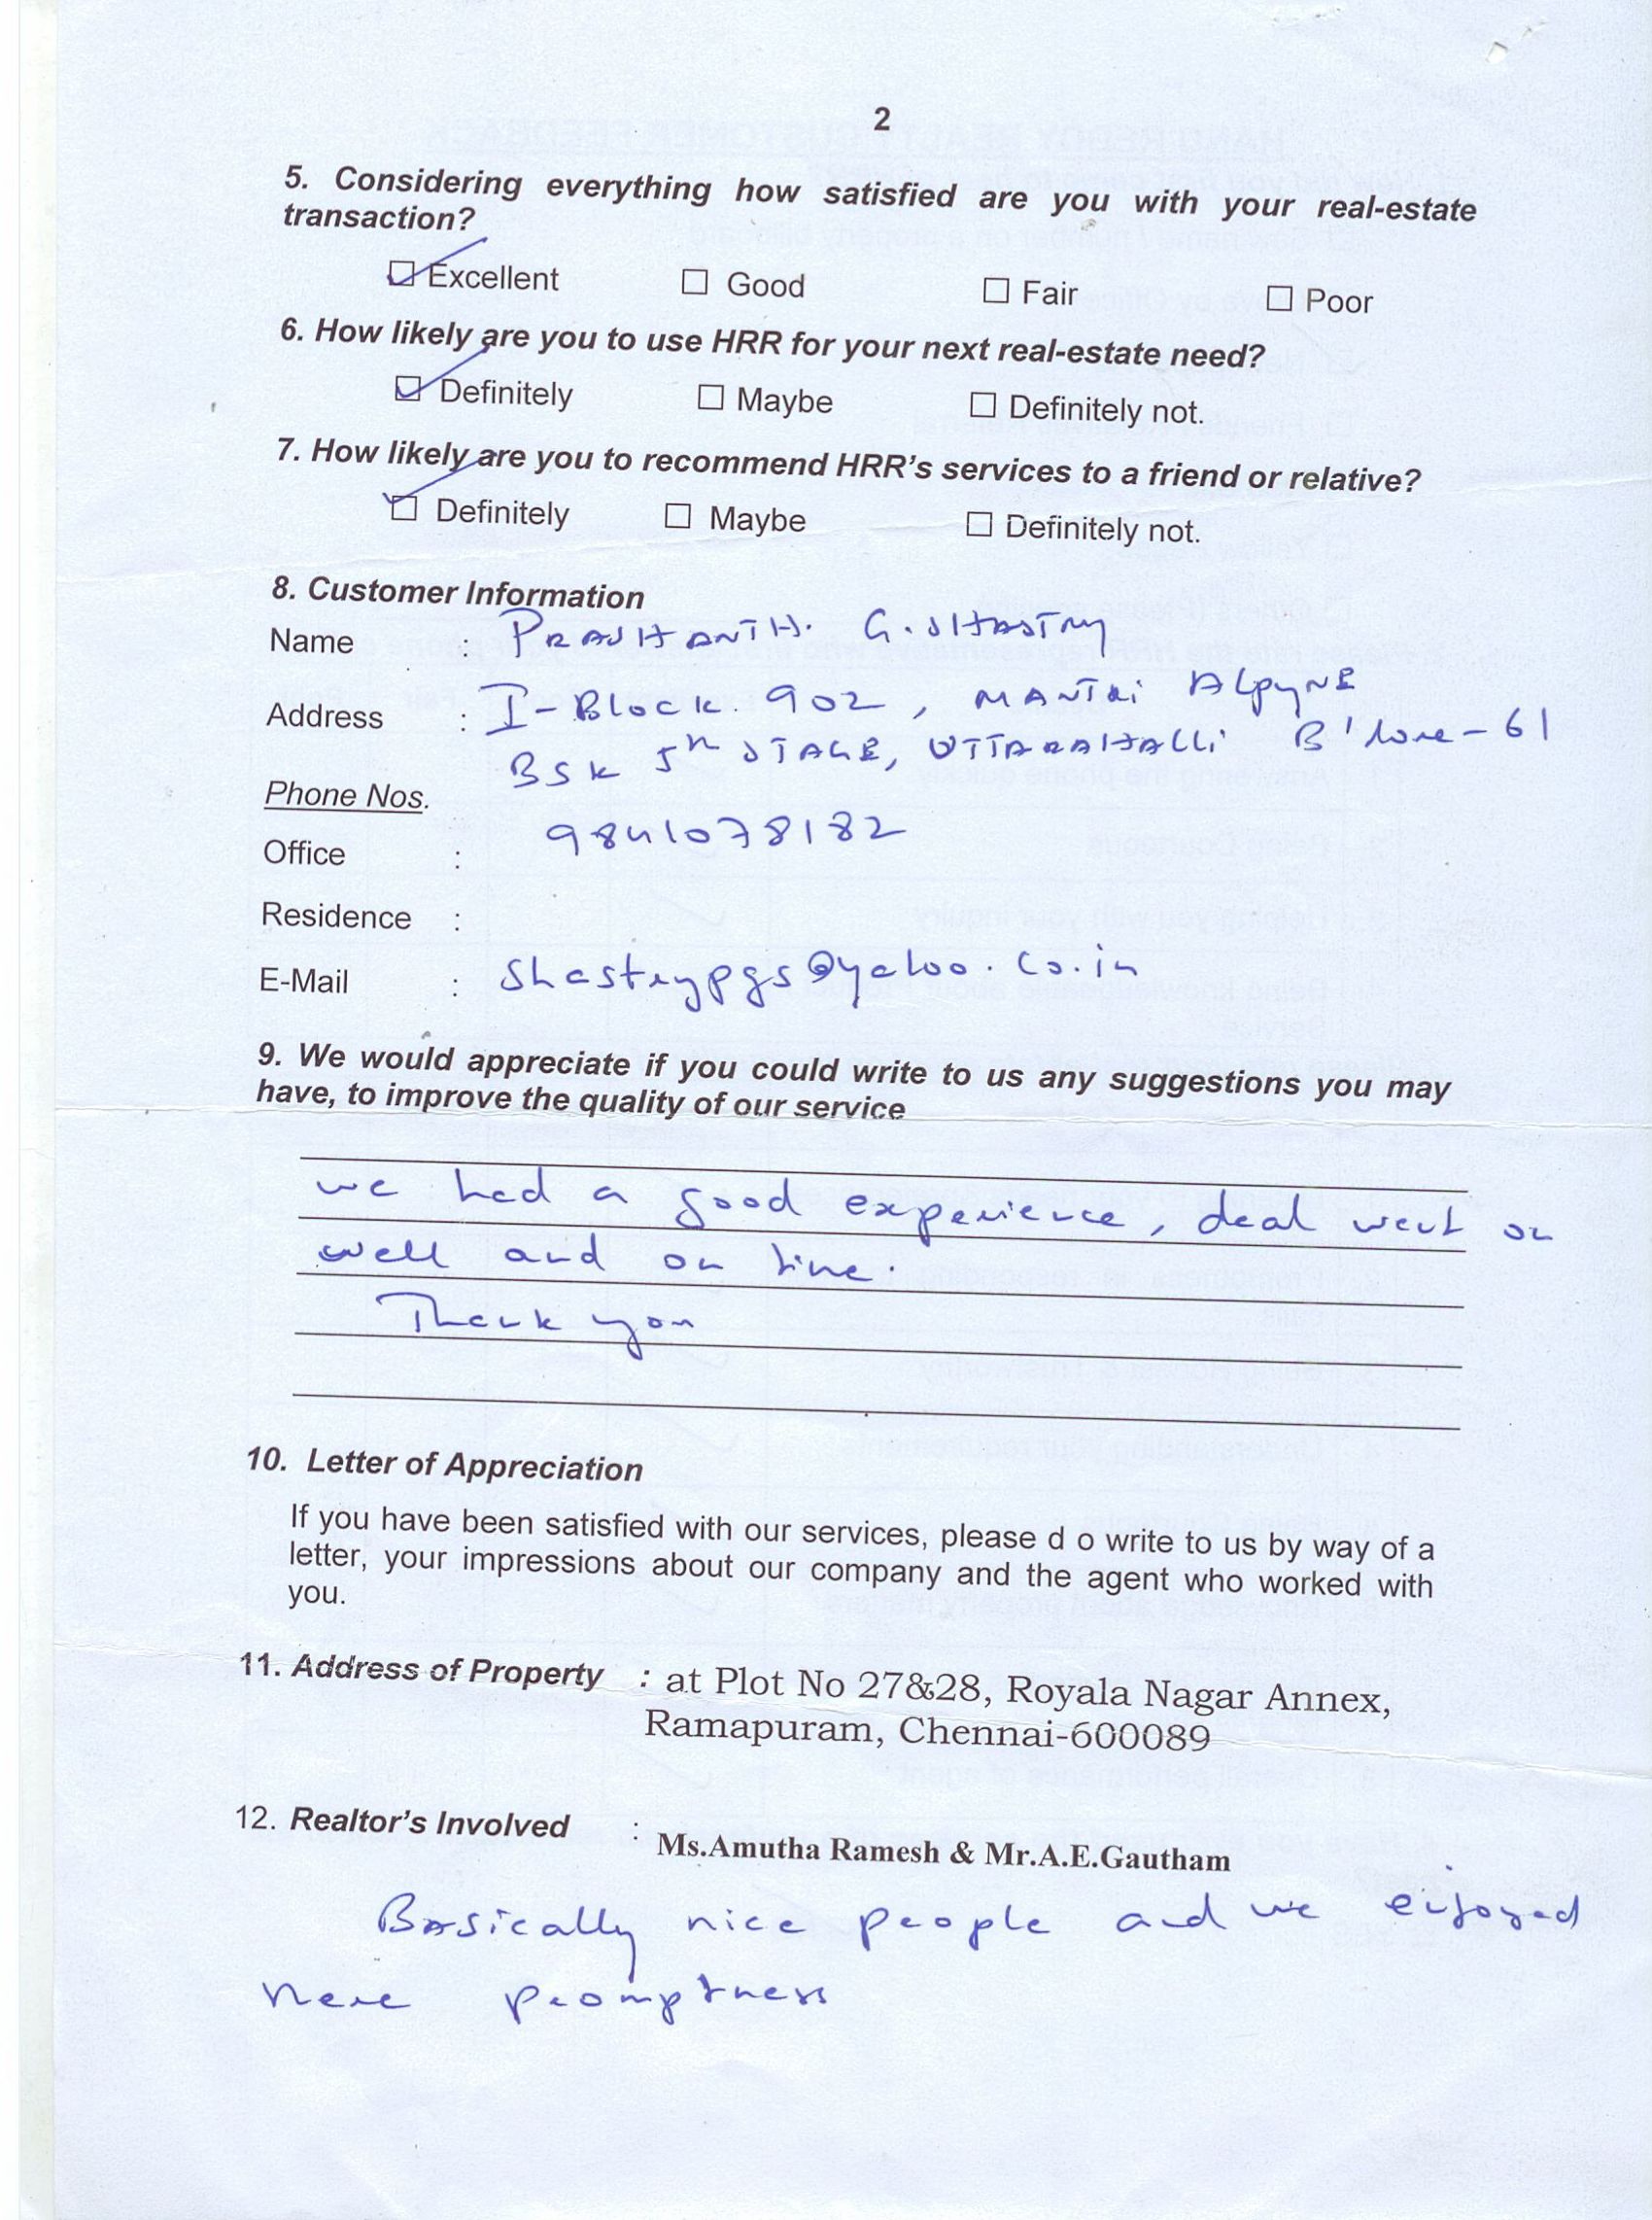 2
5. Considering everything how satisfied are you with your real-estate
transaction?
☑ Excellent ☐ Good ☐ Fair ☐ Poor
6. How likely are you to use HRR for your next real-estate need?
☑ Definitely ☐ Maybe ☐ Definitely not.
7. How likely are you to recommend HRR's services to a friend or relative?
☑ Definitely ☐ Maybe ☐ Definitely not.
8. Customer Information
Name : PRASHANTH. G. SHASTRY
Address : I-Block. 902, MANTRI ALPYNE
BSK 5th STAGE, UTTARAHALLi B'lore-61
Phone Nos.
Office : 9841078182
Residence :
E-Mail : shastrypgs@yahoo.co.in
9. We would appreciate if you could write to us any suggestions you may
have, to improve the quality of our service
we had a good experience, deal went on
well and on time.
Thank you
10. Letter of Appreciation
If you have been satisfied with our services, please d o write to us by way of a
letter, your impressions about our company and the agent who worked with
you.
11. Address of Property : at Plot No 27&28, Royala Nagar Annex,
Ramapuram, Chennai-600089
12. Realtor's Involved : Ms.Amutha Ramesh & Mr.A.E.Gautham
Basically nice people and we enjoyed
promptness